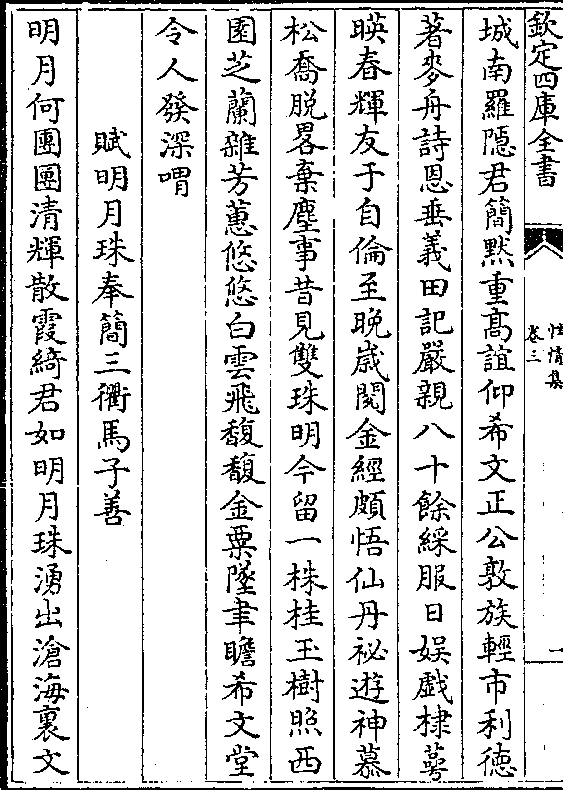 欽定四庫全書
性情集
卷三
一
城南羅隠君簡黙重髙誼仰希文正公敦族輕市利徳
著麥舟詩恩垂義田記嚴親八十餘綵服日娱戲棣蕚
暎春輝友于自倫至晚歳閱金經頗悟仙丹祕遊神慕
松喬脱畧棄塵事昔見雙珠明今留一株桂玉樹照西
園芝蘭雜芳蕙悠悠白雲飛馥馥金粟墜聿瞻希文堂
令人發深喟
賦明月珠奉簡三衢馬子善
明月何團團清輝散霞綺君如明月珠湧出滄海裏文